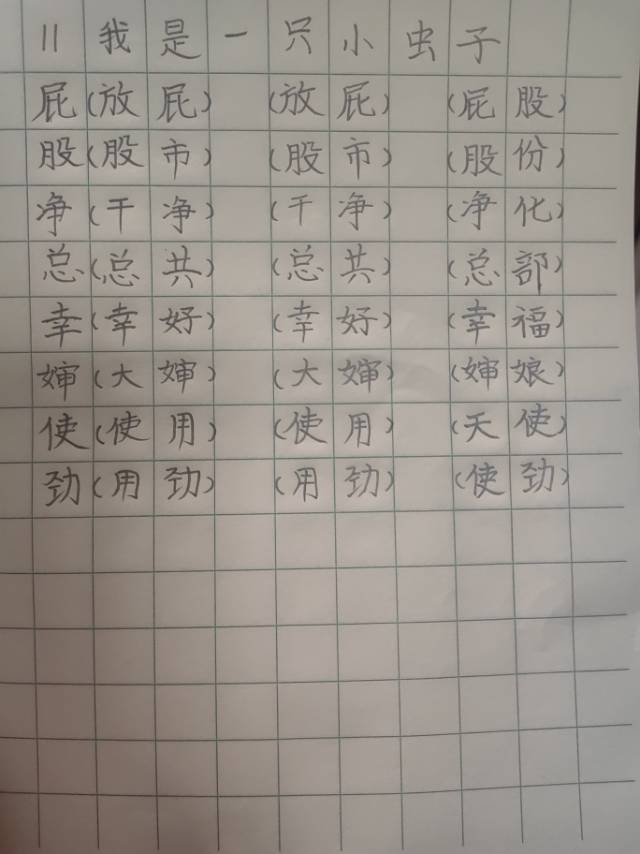 11 我是一只小虫子
屁(放屁) (放屁) (屁股)
股(股市) (股市) (股份)
净(干净) (干净) (净化)
总(总共) (总共) (总部)
幸(幸好) (幸好) (幸福)
婶(大婶) (大婶) (婶娘)
使(使用) (使用) (天使)
劲(用劲) (用劲) (使劲)